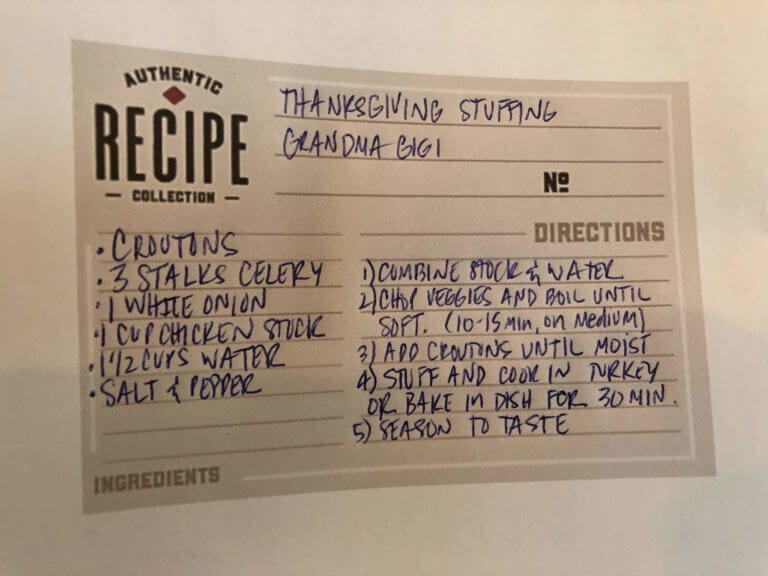 AUTHENTIC
RECIPE
COLLECTION
THANKSGIVING STUFFING
GRANDMA GIGI
Nº
• CROUTONS
• 3 STALKS CELERY
• 1 WHITE ONION
• 1 CUP CHICKEN STOCK
• 1 1/2 CUPS WATER
• SALT & PEPPER
INGREDIENTS
DIRECTIONS
1) COMBINE STOCK & WATER
2) CHOP VEGGIES AND BOIL UNTIL
SOFT. (10-15 MIN, ON MEDIUM)
3) ADD CROUTONS UNTIL MOIST
4) STUFF AND COOK IN TURKEY
OR BAKE IN DISH FOR 30 MIN.
5) SEASON TO TASTE